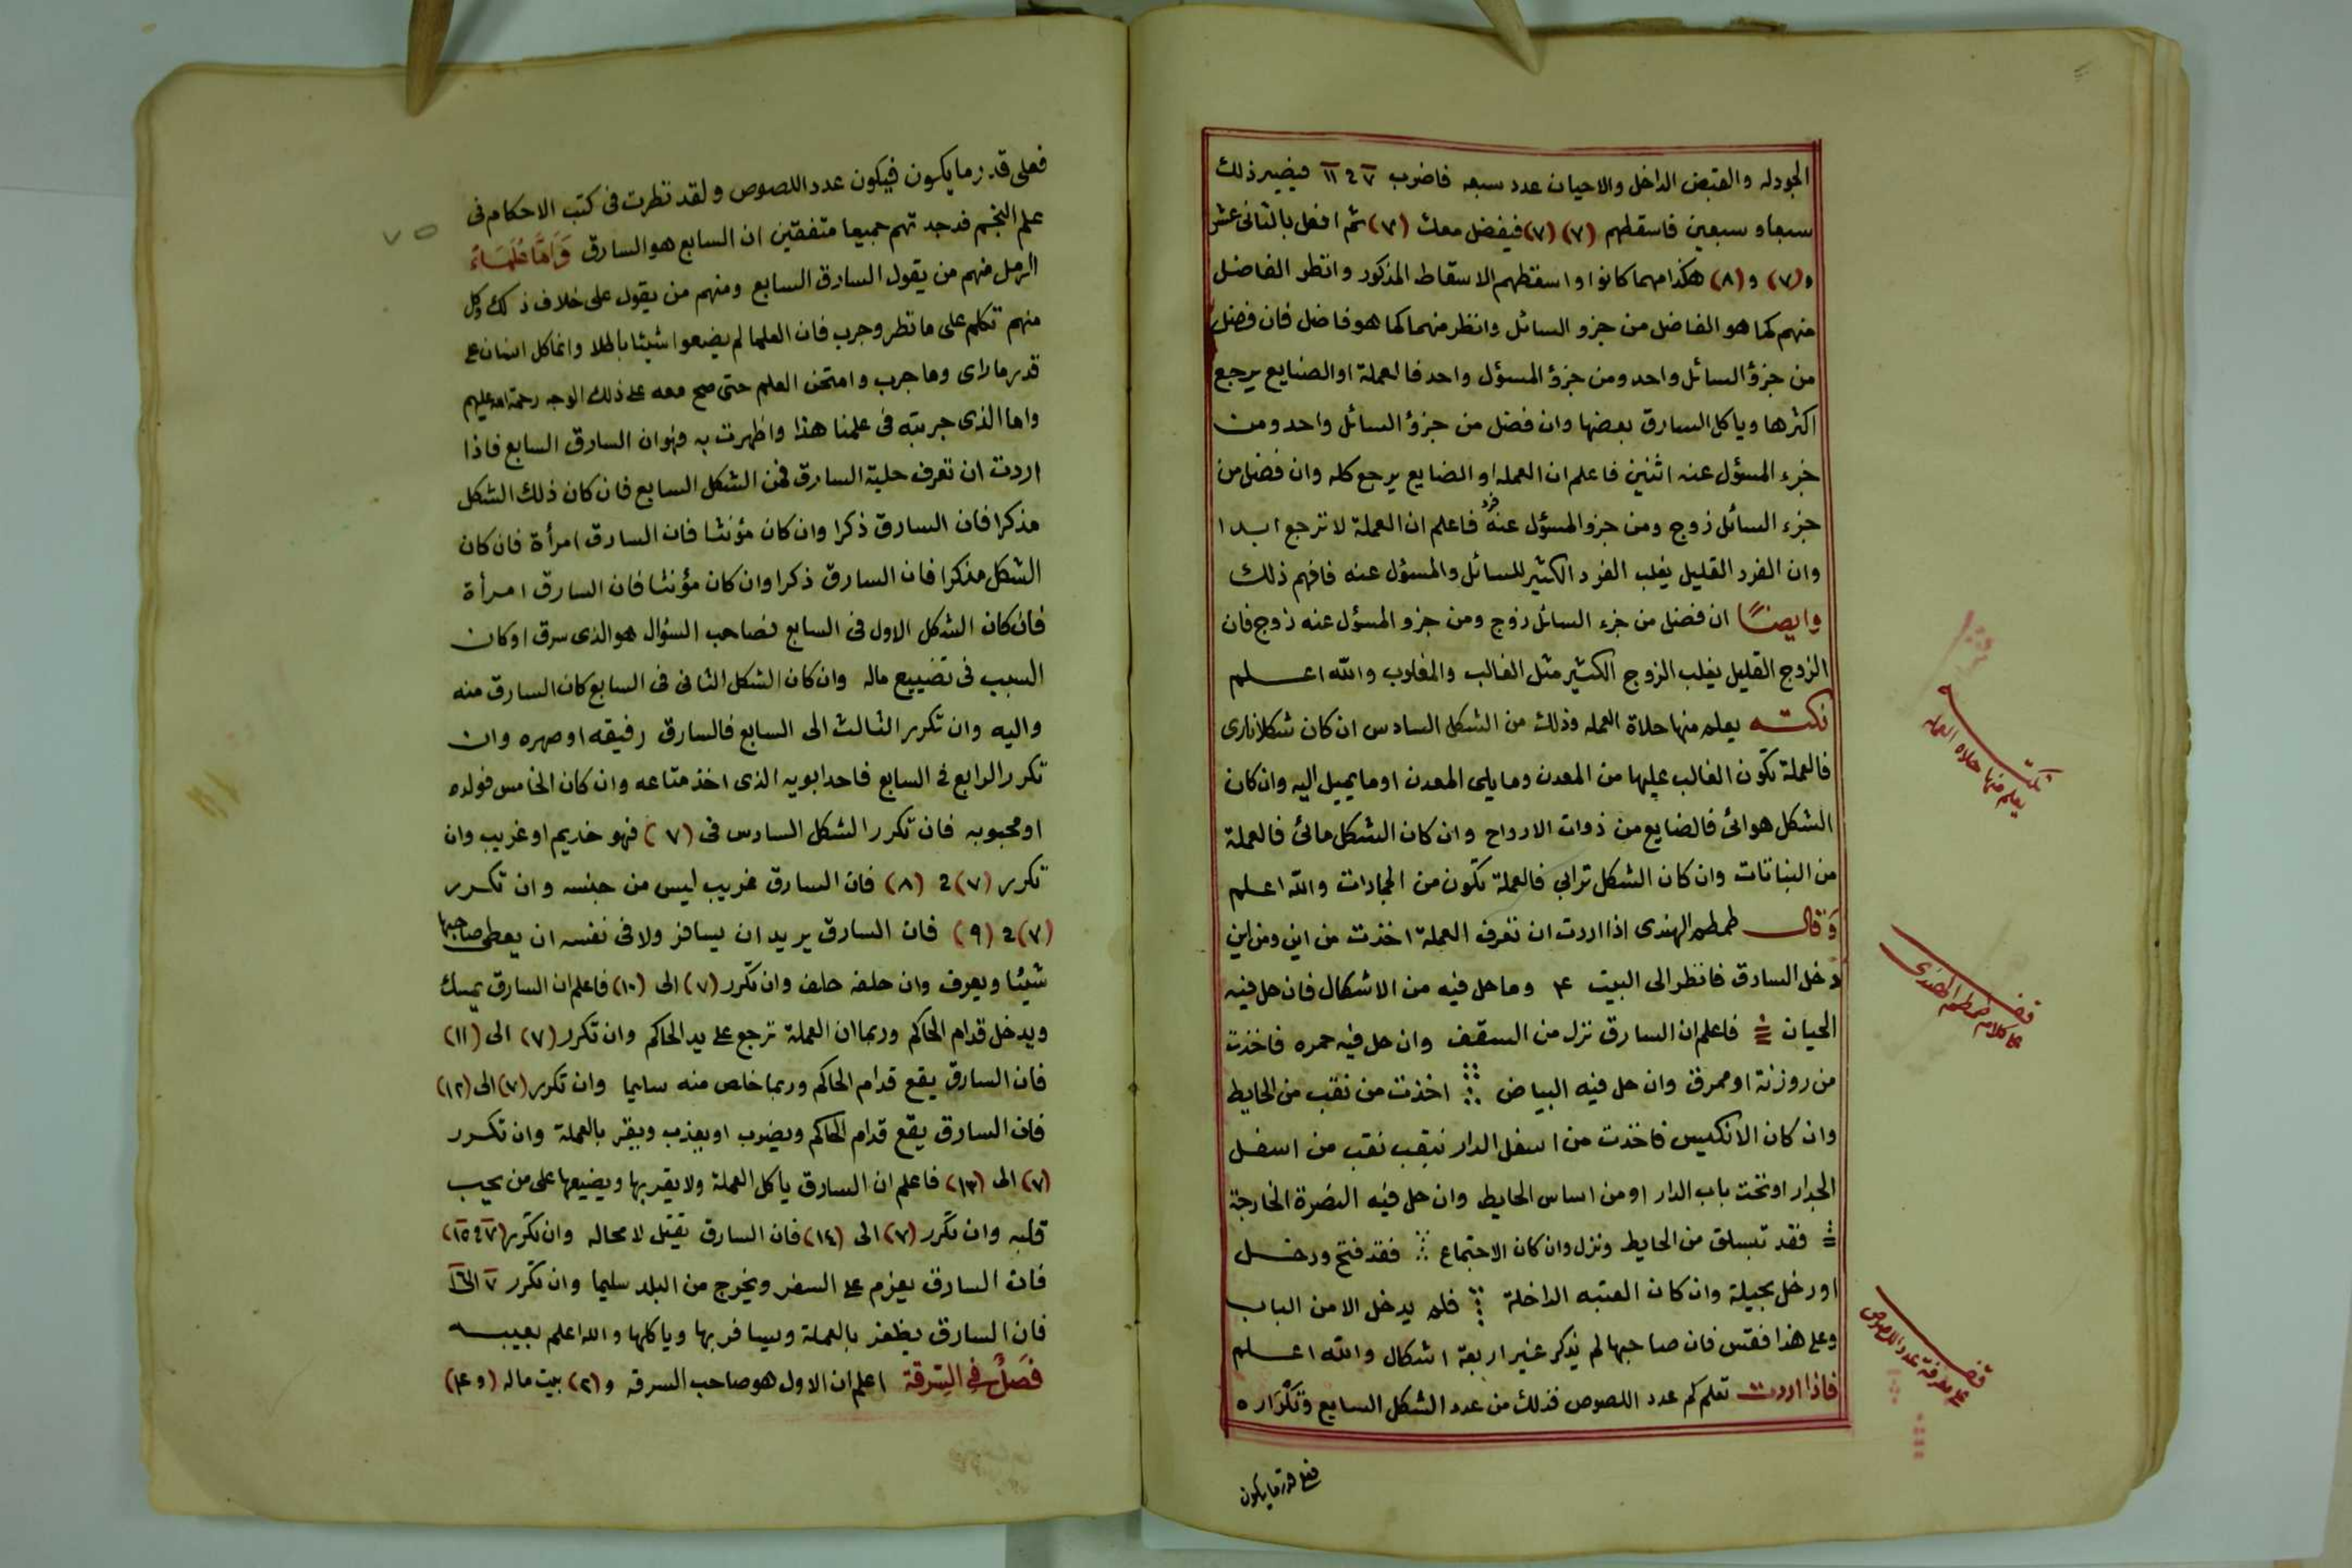 الجودله والقبض الداخل والاحيان عدد سبعه فاضرب ٧ في ١١ فيصير ذلك
سبعا وسبعين فاسقطهم (٧) (٧) فيفضل معك (٧) ثم افعل بالثانى عشر
و(٧) و(٨) هكذا مهما كانوا واسقطهم الاسقاط المذكور وانظر الفاضل
منهم كما هو الفاضل من جزو السائل وانظر منهما كما هو فاضل فان فضل
من جزؤ السائل واحد ومن جزؤ المسؤل واحد فالعملة او الضايع يرجع
اكثرها وياكل السارق بعضها وان فضل من جزؤ السائل واحد ومن
جزء المسؤل عنه اثنين فاعلم ان العمله او الضايع يرجع كله وان فضل من
جزء السائل زوج ومن جزو المسؤل عنه فرد فاعلم ان العملة لا ترجع ابدا
وان الفرد القليل يغلب الفرد الكثير للسائل والمسؤل عنه فافهم ذلك
وايضًا ان فضل من جزء السائل زوج ومن جزو المسؤل عنه زوج فان
الزوج القليل يغلب الزوج الكثير مثل الغالب والمغلوب والله اعلم
نكته يعلم منها حلاة العمله وذلك من الشكل السادس ان كان شكلا نارى
فالعملة تكون الغالب عليها من المعدن وما يلى المعدن او ما يميل اليه وان كان
الشكل هوائى فالضايع من ذوات الارواح وان كان الشكل مائى فالعملة
من النباتات وان كان الشكل ترابي فالعملة تكون من الجمادات والله اعلم
وَقال طمطم الهندى اذا اردت ان تعرف العملة اخذت من اين ومن اين
دخل السارق فانظر الى البيت ٤ وما حل فيه من الاشكال فان حل فيه
الحيان فاعلم ان السارق نزل من السقف وان حل فيه حمره فاخذت
من روزنة او ممرق وان حل فيه البياض اخذت من نقب من الحايط
وان كان الانكيس فاخذت من اسفل الدار نقب نقب من اسفل
الجدار او تحت باب الدار او من اساس الحايط وان حل فيه النصرة الخارجة
فقد تسلق من الحايط ونزل وان كان الاجتماع فقد فتح ودخل
او دخل بحيلة وان كان العتبه الداخلة فلم يدخل الا من الباب
وعلى هذا فقس فان صاحبها لم يذكر غير اربعة اشكال والله اعلم
فاذا اردت تعلم كم عدد اللصوص فذلك من عدد الشكل السابع وتكراره
فعلى قدر ما يكون
نكتة
يعلم منها حلاه العمله
قف
على كلام طمطم الهندى
قف
على معرفة عدد اللصوص
٧٥
فعلى قدر ما يكون فيكون عدد اللصوص ولقد نظرت فى كتب الاحكام فى
علم النجم فوجدتهم جميعا متفقين ان السابع هو السارق وَاَمَّا عُلَمَاءُ
الرمل منهم من يقول السارق السابع ومنهم من يقول على خلاف ذلك وكل
منهم تكلم على ما نظر وجرب فان العلما لم يضعوا شيئا باطلا وانما كل انسان على
قدر ما راى وما جرب وامتحن العلم حتى صح معه على ذلك الوجه رحمة الله عليهم
واما الذى جربته فى علمنا هذا واظهرت به فهو ان السارق السابع فاذا
اردت ان تعرف حلية السارق فمن الشكل السابع فان كان ذلك الشكل
مذكرا فان السارق ذكرا وان كان مؤنثا فان السارق امرأة فان كان
الشكل مذكرا فان السارق ذكرا وان كان مؤنثا فان السارق امرأة
فان كان الشكل الاول فى السابع فصاحب السؤال هو الذى سرق او كان
السبب فى تضييع ماله وان كان الشكل الثانى فى السابع كان السارق منه
واليه وان تكرر الثالث الى السابع فالسارق رفيقه او صهره وان
تكرر الرابع فى السابع فاحد ابويه الذى اخذ متاعه وان كان الخامس فولده
او محبوبه فان تكرر الشكل السادس فى (٧) فهو خديم او غريب وان
تكرر (٧) في (٨) فان السارق غريب ليس من جنسه وان تكرر
(٧) في (٩) فان السارق يريد ان يسافر ولا فى نفسه ان يعطى صاحبها
شيئا ويعرف وان حلفه حلف وان تكرر (٧) الى (١٠) فاعلم ان السارق يمسك
ويدخل قدام الحاكم وربما ان العملة ترجع على يد الحاكم وان تكرر (٧) الى (١١)
فان السارق يقع قدام الحاكم وربما خلص منه سليما وان تكرر (٧) الى (١٢)
فان السارق يقع قدام الحاكم ويضرب او يعذب ويقر بالعملة وان تكرر
(٧) الى (١٣) فاعلم ان السارق ياكل العملة ولا يقربها ويضيعها على من يحب
قلبه وان تكرر (٧) الى (١٤) فان السارق يقتل لا محاله وان تكرر (٧ في ١٥)
فان السارق يعزم على السفر ويخرج من البلد سليما وان تكرر ٧ الى ١٦
فان السارق يظفر بالعملة ويسافر بها وياكلها والله اعلم بغيبه
فَصْلٌ فى السرقة اعلم ان الاول هو صاحب السرقه و(٢) بيت ماله (و٤)